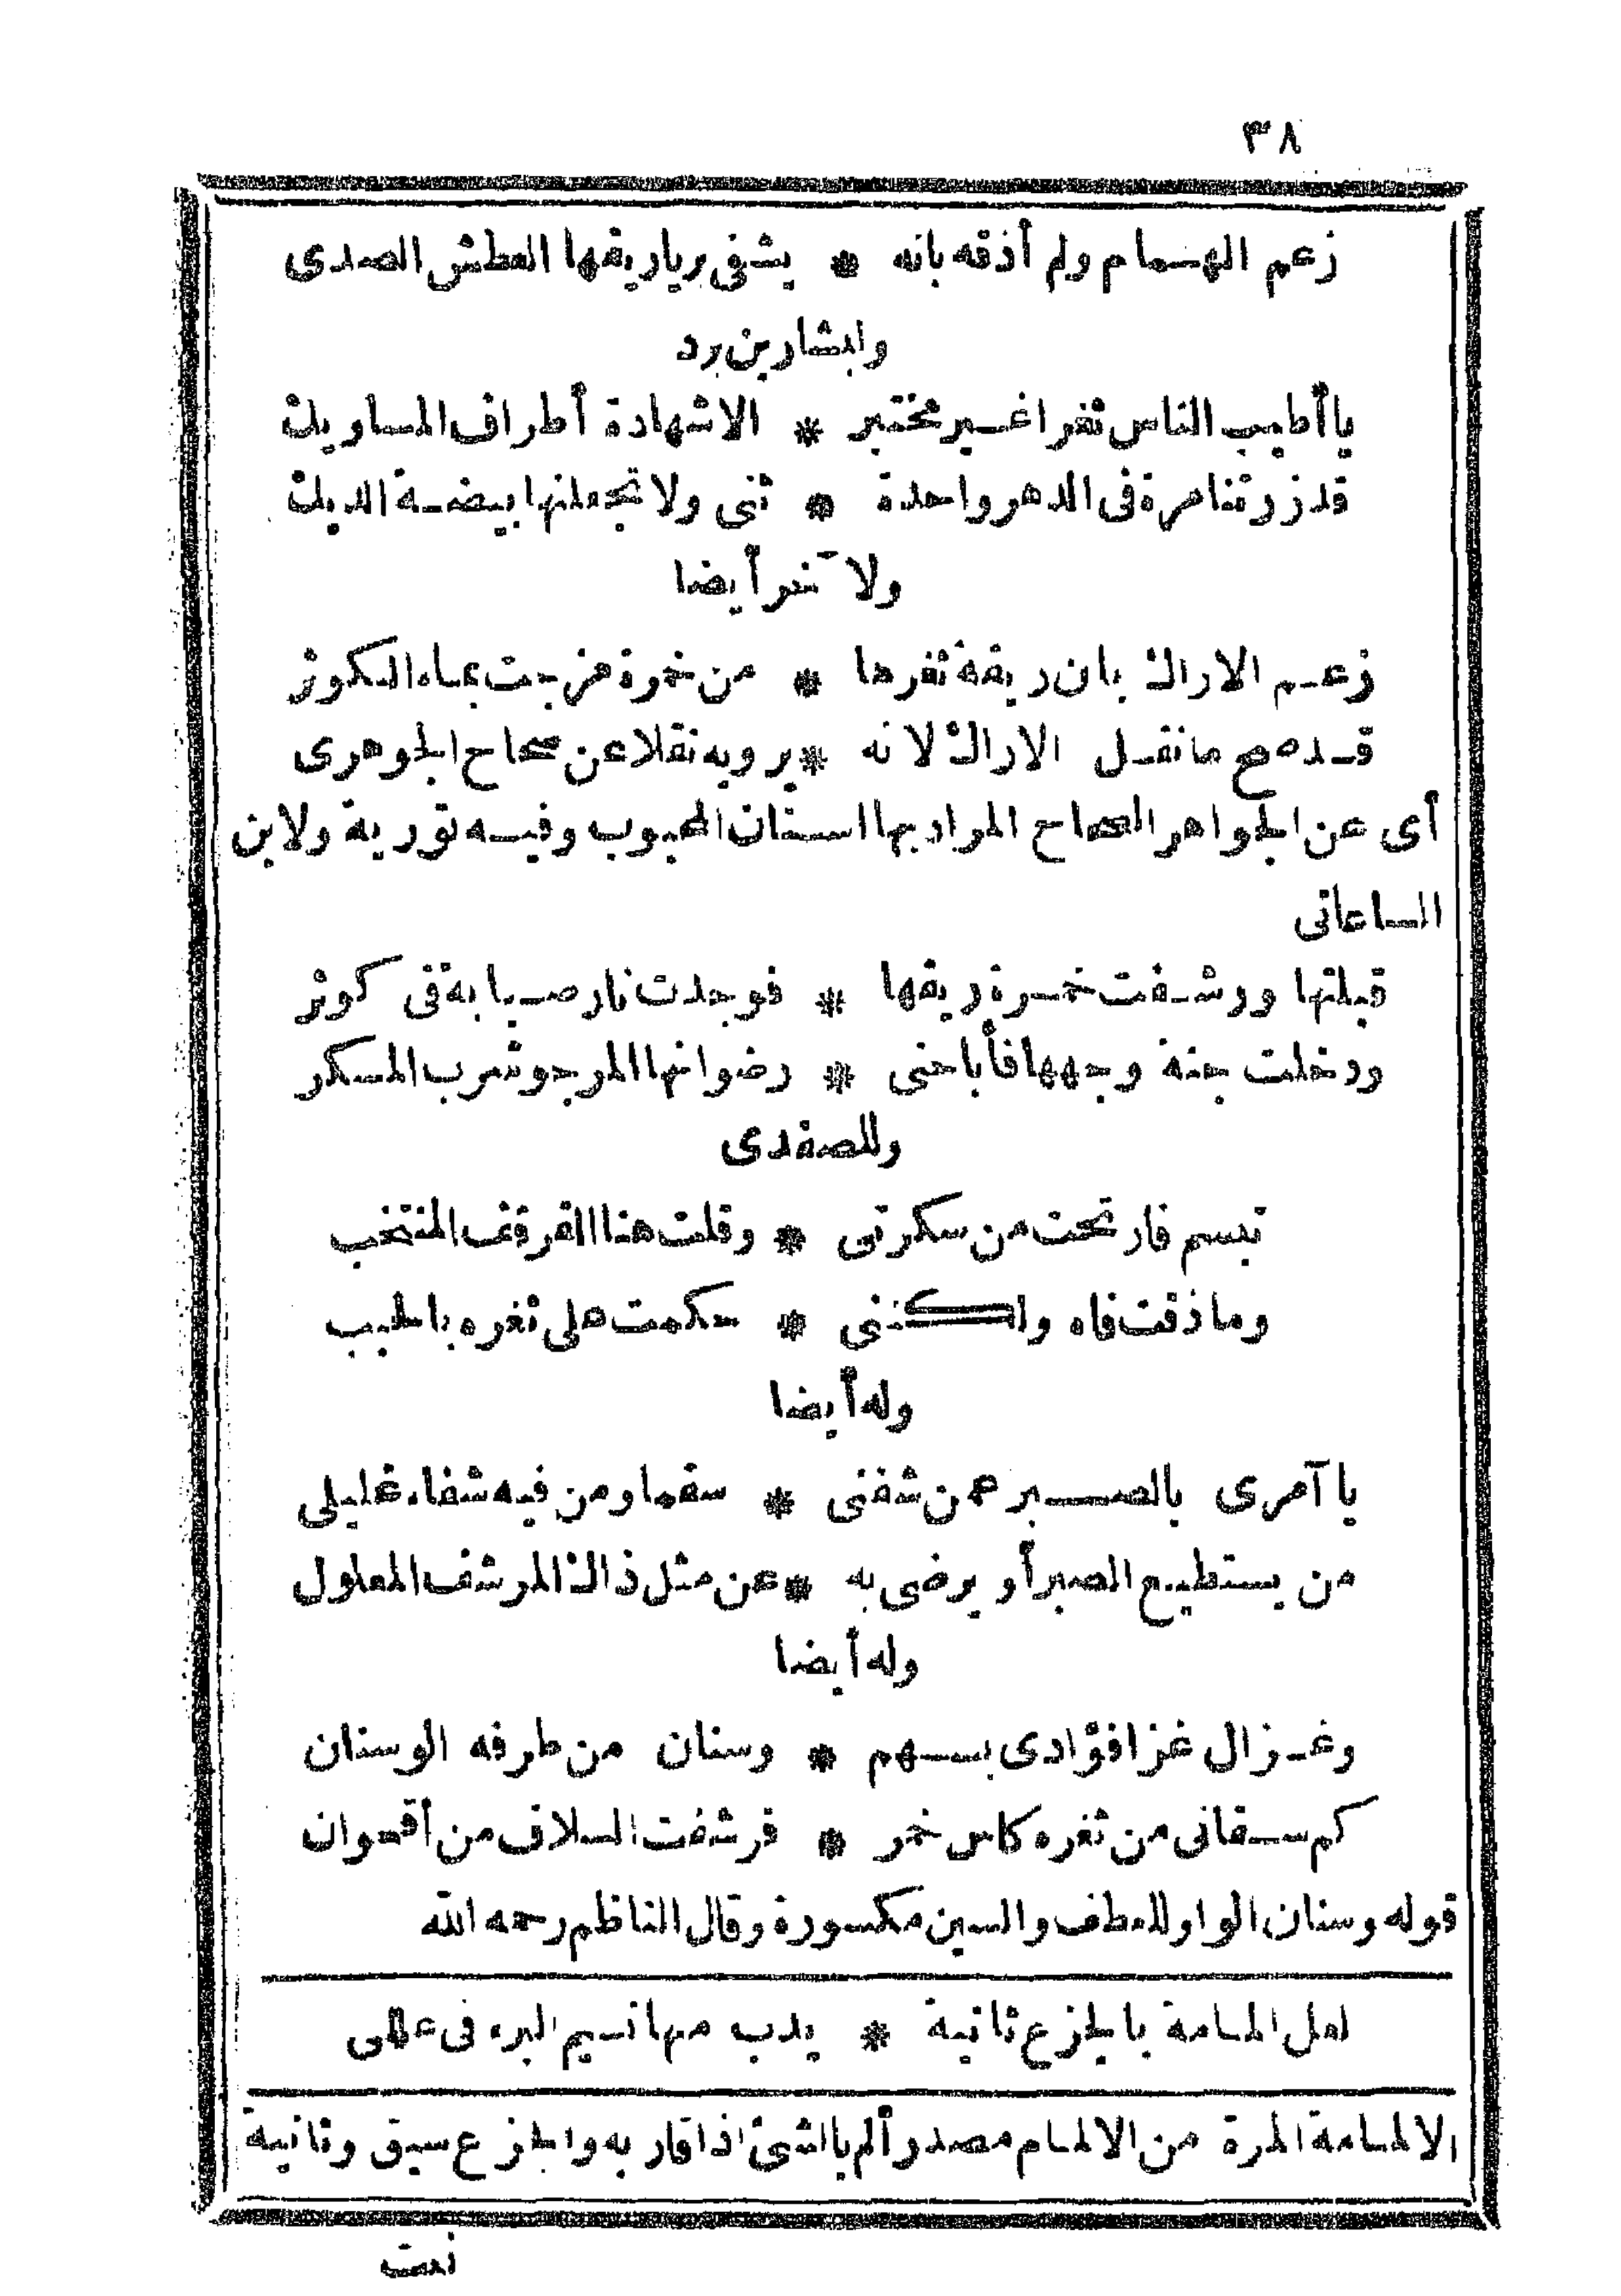 ٣٨
زعم الهمام ولم أذقه بانه * يشفى بريا ريقها العطش الصدى
ولبشار بن برد
يا أطيب الناس ثغرا غير مختبر * الا شهادة أطراف المساويك
قد زرتنا مرة فى الدهر واحدة * ثنى ولا تجعلنها بيضة الديك
ولا آخر أيضا
زعم الاراك بان ريقة ثغرها * من خمرة مزجت بماء الكوثر
قد صح ما نقل الاراك لانه * يرويه نقلا عن صحاح الجوهرى
أى عن الجواهر الصحاح المراد بها اسنان المحبوب وفيه تورية ولابن
الساعاتى
قبلتها ورشفت خمرة ريقها * فوجدت نار صبابة فى كوثر
ودخلت جنة وجهها فأباحنى * رضوانها المرجو شرب المسكر
وللصفدى
تبسم فارتحت من سكرتى * وقلت هنا القرقف المنتخب
وما ذقت فاه ولكننى * حكمت على ثغره بالحبب
وله أيضا
يا آمرى بالصبر عمن شفنى * سقما ومن فيه شفاء غليلى
من يستطيع الصبر أو يرضى به * عن مثل ذاك المرشف المعلول
وله أيضا
وغزال غزا فؤادى بسهم * وسنان من طرفه الوسنان
كم سقانى من ثغره كاس خمر * فرشفت السلاف من أقحوان
قوله وسنان الواو للعطف والسين مكسورة وقال الناظم رحمه الله
لعل المامة بالجزع ثانية * يدب منها نسيم البرء فى عللى
الالمامة المرة من الالمام مصدر ألم بالشئ اذا قاربه والجزع سبق وثانية
نعت